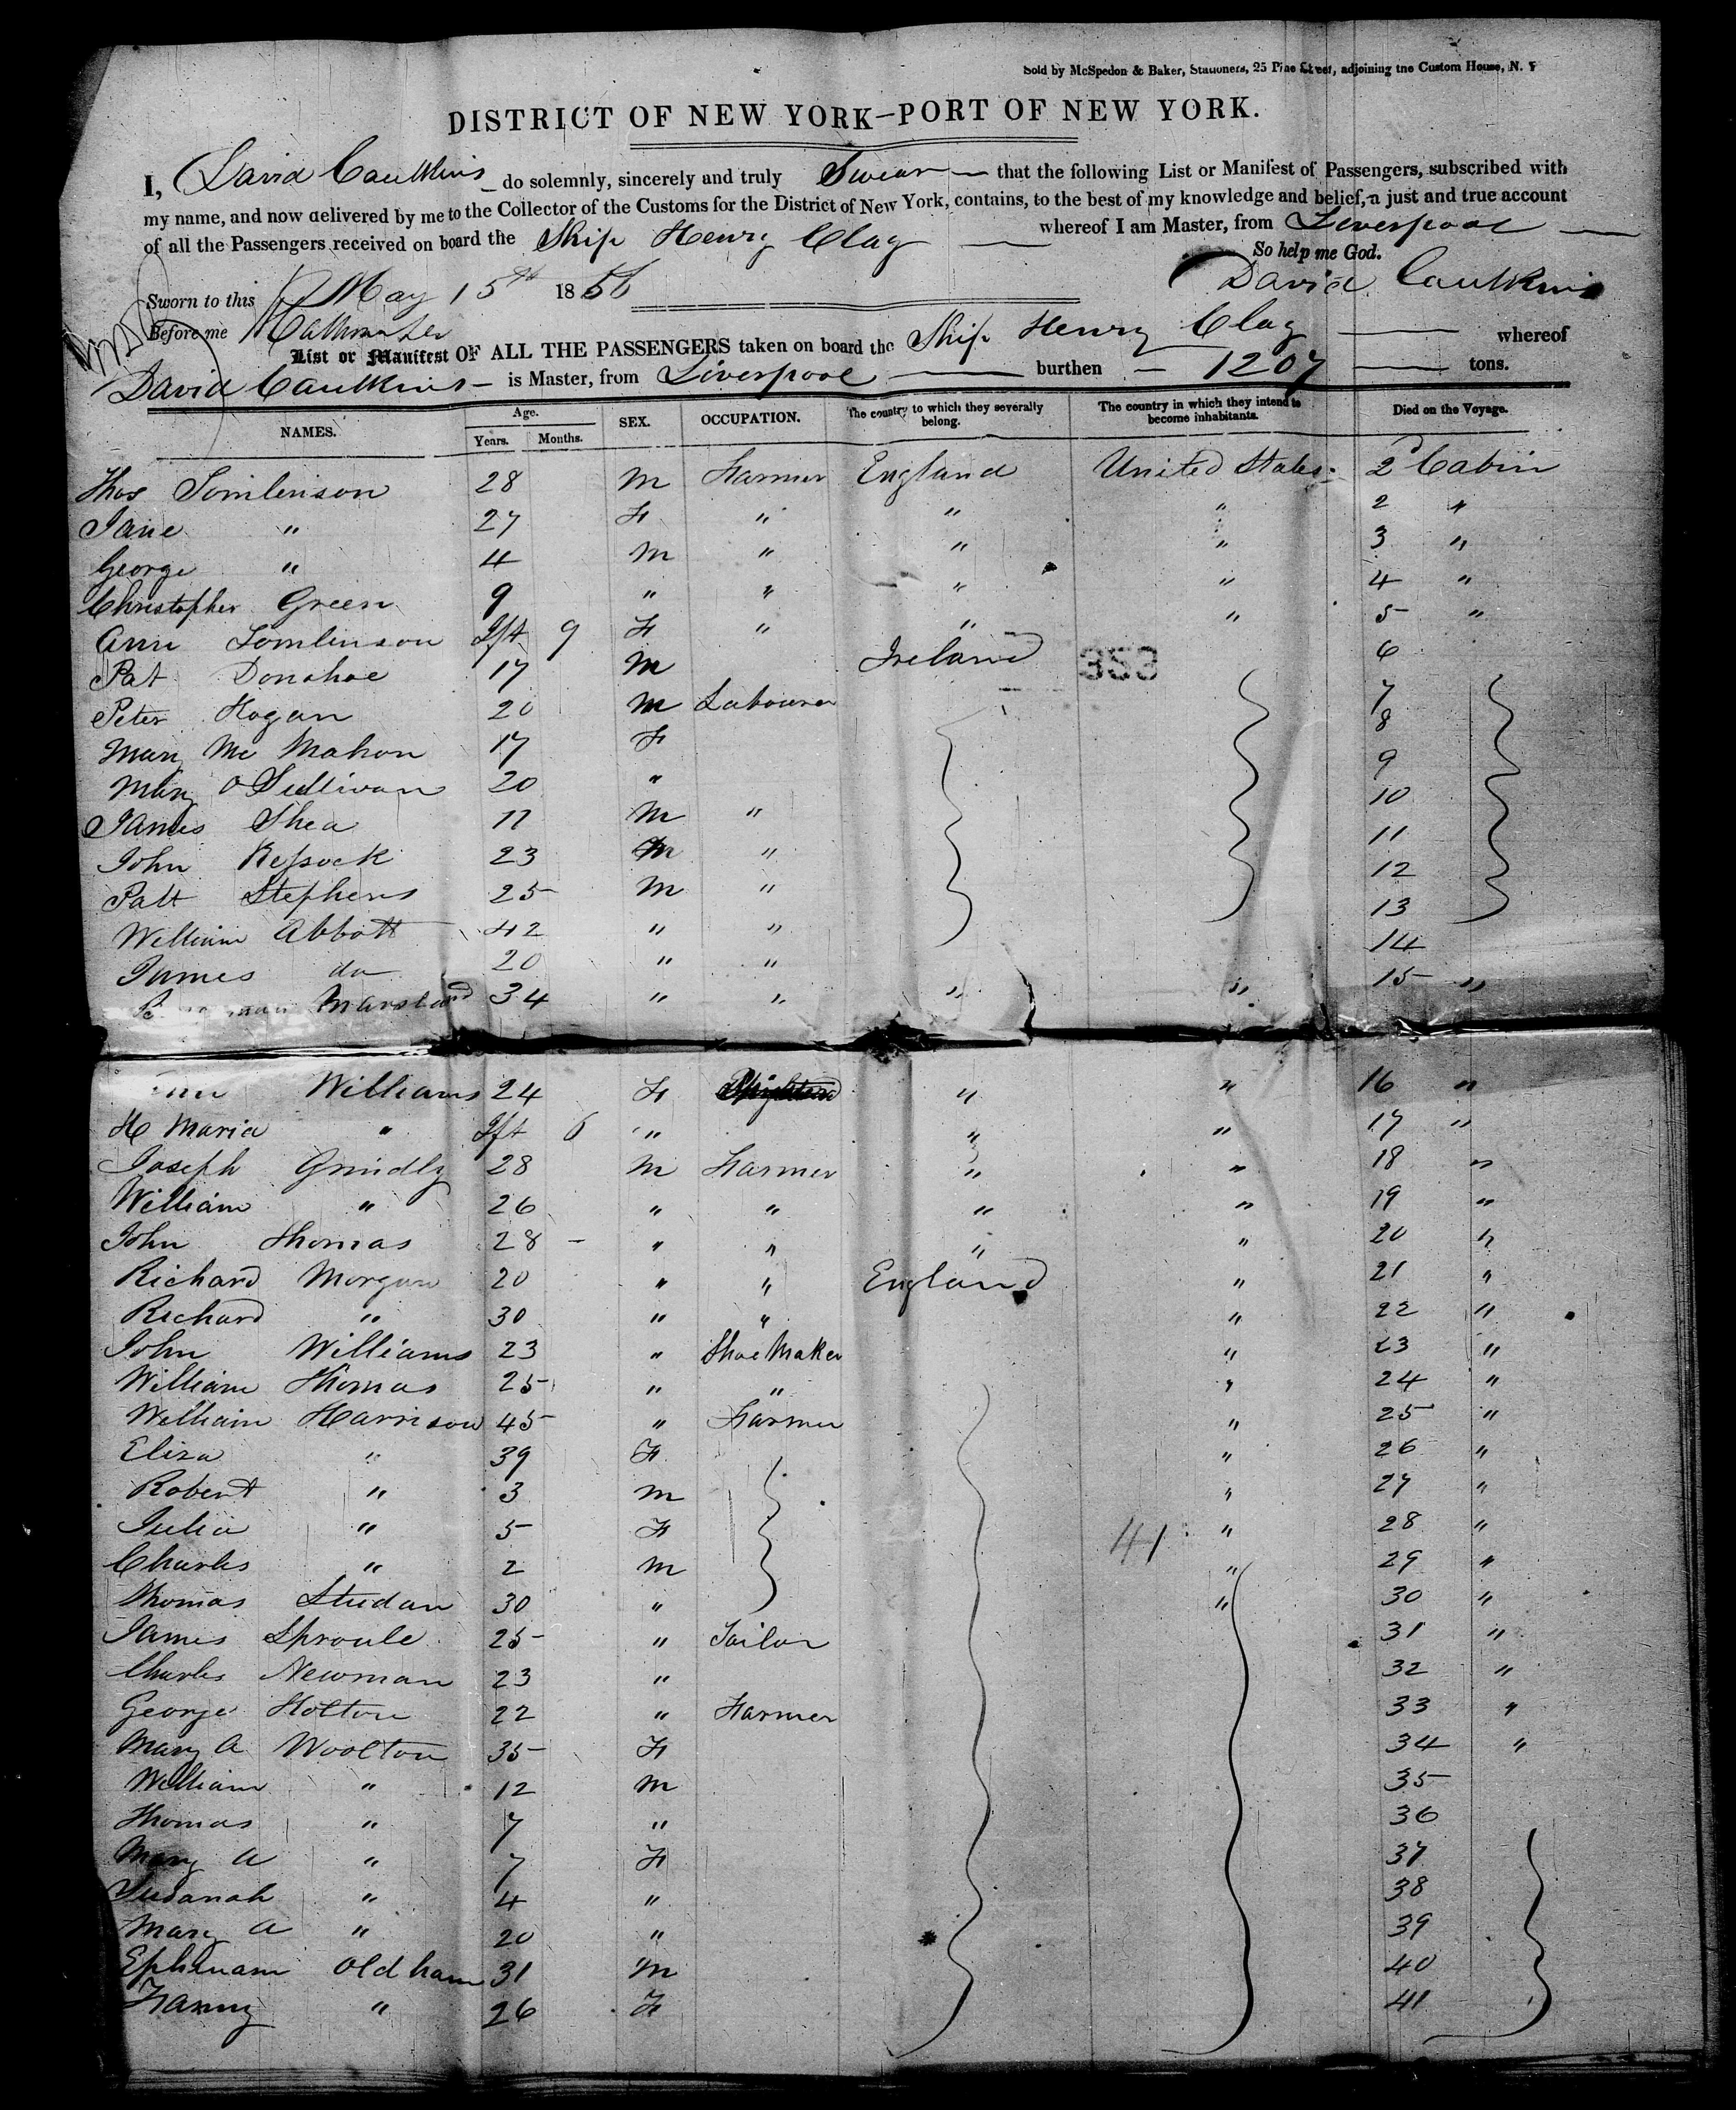 Sold by McSpedon & Baker, Stationers, 25 Pine Street, adjoining the Custom House, N. Y
DISTRICT OF NEW YORK—PORT OF NEW YORK.
I, David Caulkins do solemnly, sincerely and truly Swear — that the following List or Manifest of Passengers, subscribed with
my name, and now delivered by me to the Collector of the Customs for the District of New York, contains, to the best of my knowledge and belief, a just and true account
of all the Passengers received on board the Ship Henry Clay — whereof I am Master, from Liverpool —
So help me God.
Sworn to this May 15th 18 David Caulkins
Before me
List or Manifest OF ALL THE PASSENGERS taken on board the Ship Henry Clay — whereof
David Caulkins — is Master, from Liverpool — burthen — 1207 — tons.
NAMES. Age. Years. Months. SEX. OCCUPATION. The country to which they severally belong. The country in which they intend to become inhabitants. Died on the Voyage.
Thos Tomlinson 28 M Farmer England United States. 2d Cabin
Jane " 27 F " " " 2 "
George " 4 M " " " 3 "
Christopher Green 9 " " " " 4 "
Ann Tomlinson Ift 9 F " " " 5 "
Pat Donahoe 17 M Ireland 353 6
Peter Hogan 20 M Labourer 7
Mary Mc Mahon 17 F 8
Mary O Sullivan 20 " 9
James Shea 17 M " 10
John 23 M " 11
Patt Stephens 25 M " 12
William Abbott 42 " " 13
James do 20 " " 14
34 " " " " 15 "
Williams 24 F " " 16 "
H Maria " Ift 6 " " " 17 "
Joseph Grindly 28 M Farmer " " 18 "
William " 26 " " " " 19 "
John Thomas 28 – " " " " 20 "
Richard Morgan 20 " " England " 21 "
Richard " 30 " " " 22 "
John Williams 23 " Shoe Maker " 23 "
William Thomas 25 " " " 24 "
William Harrison 45 " Farmer " 25 "
Eliza " 39 F " 26 "
Robert " 3 M " 27 "
Julia " 5 F 41 " 28 "
Charles " 2 M " 29 "
Thomas 30 " " 30 "
James Sproule 25 " Tailor 31 "
Charles Newman 23 " 32 "
George Holton 22 " Farmer 33 "
Mary A Woolton 35 F 34 "
William " 12 M 35
Thomas " 7 " 36
Mary A " 7 F 37
Susanah " 4 " 38
Mary A " 20 " 39
Oldham 31 M 40
Fanny " 26 F 41